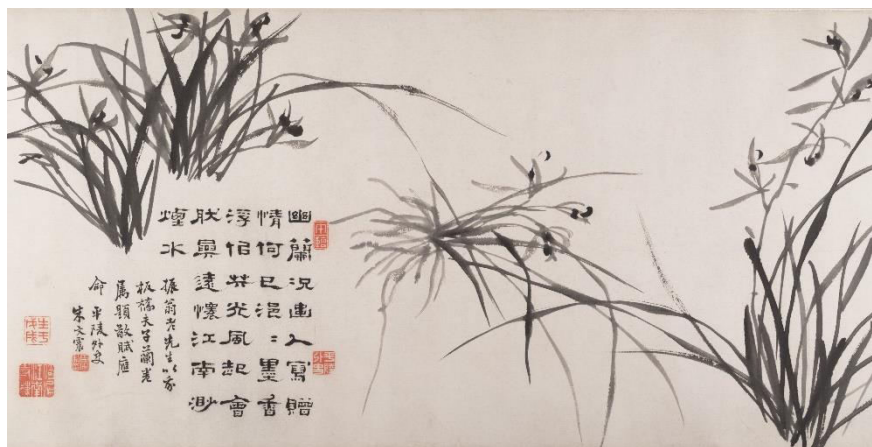 幽蘭況幽人寫贈
情何已浥〻墨香
浮共光風起會
遠懷江南渺
煙水
振翁老先生以家
板橋夫子蘭卷
屬題敬賦應
命 平陵外史
朱文震